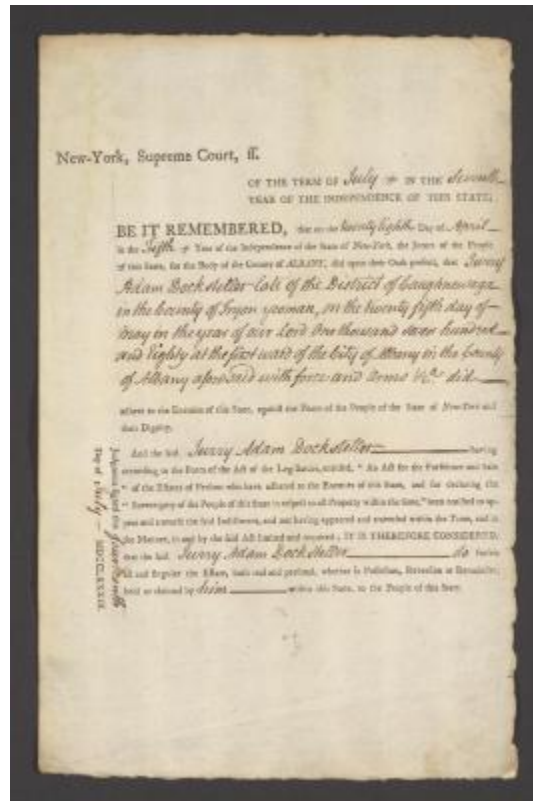 New-York, Supreme Court, ss.
OF THE TERM OF July IN THE Seventh
YEAR OF THE INDEPENDENCE OF THIS STATE;
BE IT REMEMBERED, that on the twenty Eighth Day of April
in the Fifth Year of the Independence of the State of New-York, the Jurors of the People
of this State, for the Body of the County of ALBANY, did upon their Oath present, that Jurry
Adam Dockstetter late of the District of Caughnawaga
in the County of Tryon yeoman, on the twenty fifth day of
May in the year of our Lord One thousand seven hundred
and Eighty at the first ward of the City of Albany in the County
of Albany aforesaid with force and arms &c. did
adhere to the Enemies of this State, against the Peace of the People of the State of New-York and
their Dignity.
And the said Jurry Adam Dockstetter having
according to the Form of the Act of the Legislature, entitled, "An Act for the Forfeiture and Sale
" of the Estates of Persons who have adhered to the Enemies of this State, and for declaring the
" Sovereignty of the People of this State in respect to all Property within the Same," been notified to ap-
pear and traverse the said Indictment, and not having appeared and traversed within the Time, and in
the Manner, in and by the said Act limited and required; IT IS THEREFORE CONSIDERED,
that the said Jurry Adam Dockstetter do forfeit
all and singular the Estate, both real and personal, whether in Possession, Reversion or Remainder,
held or claimed by him within this State, to the People of this State.
Judgment signed this fourteenth
Day of July MDCCLXXXIII.